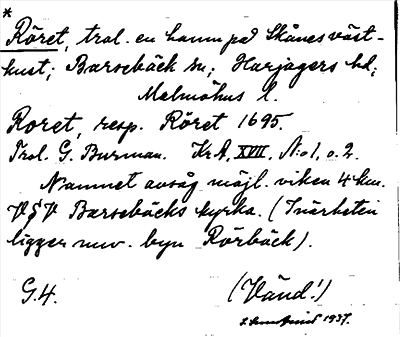 *
Röret, trol. en hamn på Skånes väst-
kust; Barsebäck sn; Harjagers hd;
Malmöhus l.
Roret, resp. Röret 1695.
Trol. G. Burman. Kr.A, XVII, N:o 1, o. 2.
Namnet avsåg möjl. viken 4 km.
V§V Barsebäcks kyrka. (I närheten
ligger nuv. byn Rörbäck).
G.4. (Vänd!)
1937.